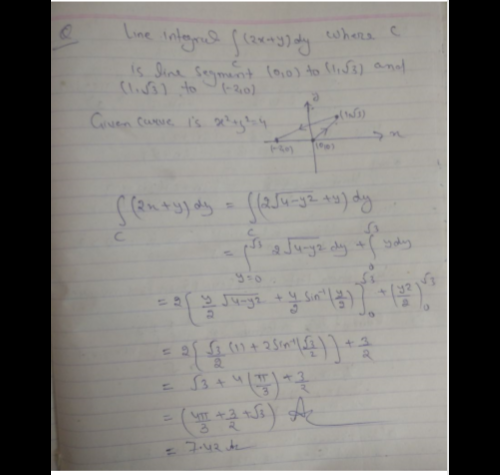 Q Line Integral ∫_C (2x+y)dy where C
is line segment (0,0) to (1,√3) and
(1,√3) to (-2,0)
Given curve is x²+y²=4
y
(1,√3)
x
(-2,0) (0,0)
∫_C (2x+y)dy = ∫_C (2√4-y² + y)dy
= ∫_{y=0}^{√3} 2√4-y² dy + ∫_0^{√3} y dy
= 2[y/2 √4-y² + 4/2 sin⁻¹(y/2)]_0^{√3} + (y²/2)_0^{√3}
= 2[√3/2 (1) + 2 sin⁻¹(√3/2)] + 3/2
= √3 + 4(π/3) + 3/2
= (4π/3 + 3/2 + √3)
= 7.42